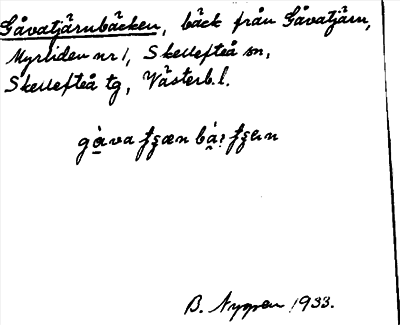 Gåvatjärnbäcken, bäck från Gåvatjärn,
Myrliden nr 1, Skellefteå sn,
Skellefteå tg, Västerb. l.
B. Nygren 1933.